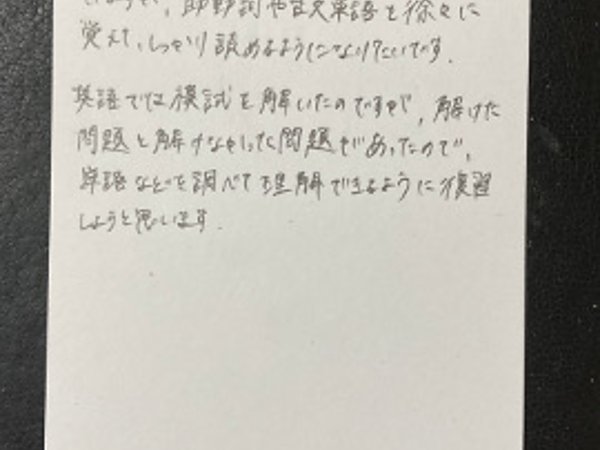 いますが、助動詞や古文単語を徐々に
覚えて、しっかり読めるようになりたいです。
英語では模試を解いたのですが、解けた
問題と解けなかった問題があったので、
単語などを調べて理解できるように復習
しようと思います。